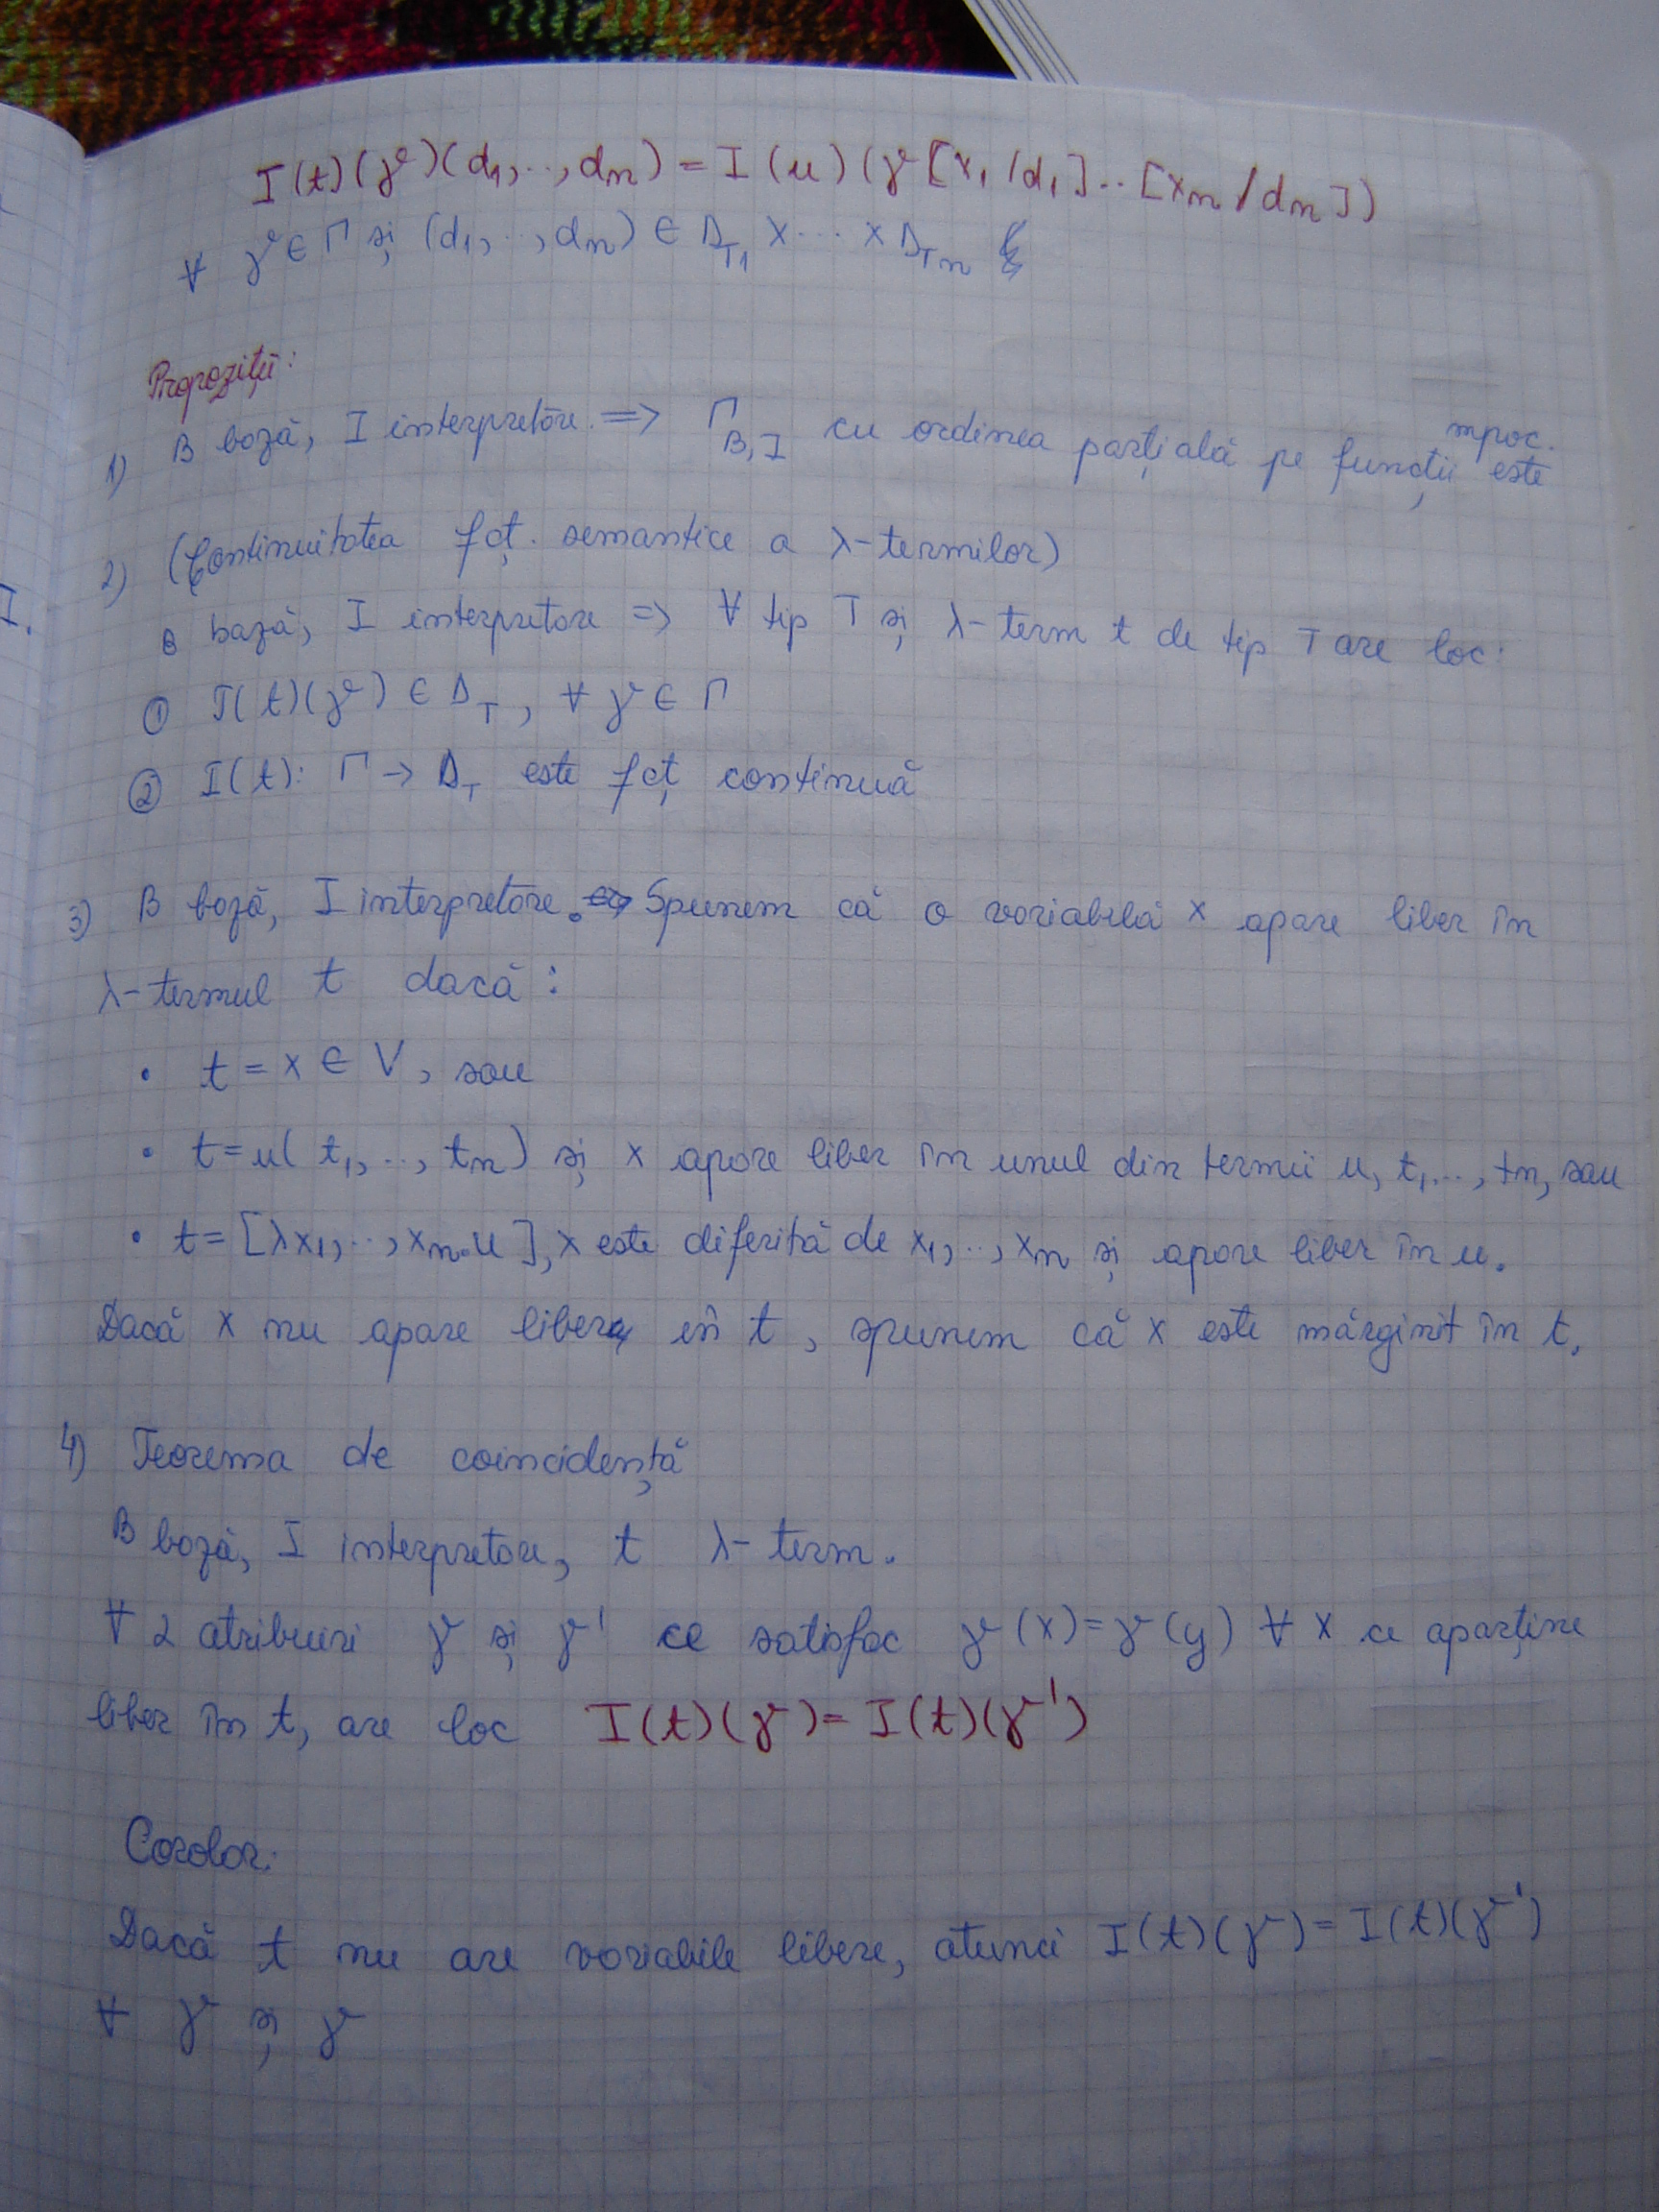 I(t)(γ)(d₁,..,dₙ) = I(u)(γ[x₁/d₁]..[xₙ/dₙ])
∀ γ ∈ Γ și (d₁,..,dₙ) ∈ D_T₁ × ... × D_Tₙ
Propoziții:
1) B bază, I interpretare. => Γ_B,I cu ordinea parțială pe funcții este mpoc.
2) (Continuitatea fcț. semantice a λ-termilor)
B bază, I interpretare => ∀ tip T și λ-term t de tip T are loc:
① I(t)(γ) ∈ D_T, ∀ γ ∈ Γ
② I(t): Γ → D_T este fcț continuă
3) B bază, I interpretare. Spunem că o variabilă x apare liber în
λ-termul t dacă:
• t = x ∈ V, sau
• t = u(t₁,..,tₙ) și x apare liber în unul din termii u, t₁,..., tₙ, sau
• t = [λx₁,..,xₙ.u], x este diferită de x₁,..,xₙ și apare liber în u.
Dacă x nu apare liber în t, spunem că x este mărginit în t.
4) Teorema de coincidență
B bază, I interpretare, t λ-term.
∀ 2 atribuiri γ și γ' ce satisfac γ(x)=γ(y) ∀ x ce aparține
liber în t, are loc I(t)(γ) = I(t)(γ')
Corolar:
Dacă t nu are variabile libere, atunci I(t)(γ) = I(t)(γ')
∀ γ și γ